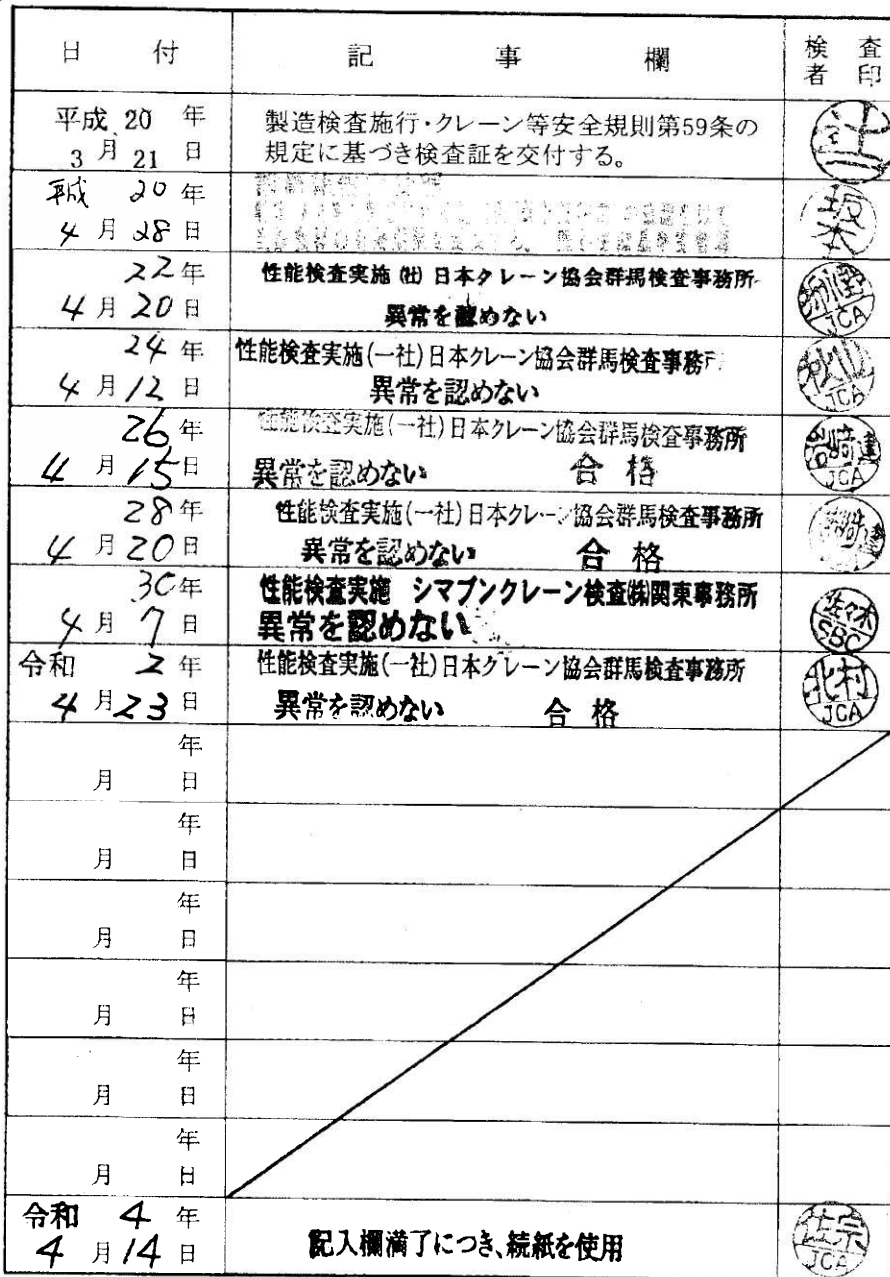 日 付 記 事 欄 検 査
者 印
平成 20 年
3 月 21 日
製造検査施行・クレーン等安全規則第59条の
規定に基づき検査証を交付する。
辻
平成 20 年
4 月 28 日
坂
本
22 年
4 月 20 日
性能検査実施 (社) 日本クレーン協会群馬検査事務所
異常を認めない
JCA
24 年
4 月 12 日
性能検査実施(一社)日本クレーン協会群馬検査事務所
異常を認めない
JCA
26 年
4 月 15 日
性能検査実施(一社)日本クレーン協会群馬検査事務所
異常を認めない 合 格
JCA
28 年
4 月 20 日
性能検査実施(一社)日本クレーン協会群馬検査事務所
異常を認めない 合 格
30 年
4 月 7 日
性能検査実施 シマブンクレーン検査㈱関東事務所
異常を認めない
佐々木
SBC
令和 2 年
4 月 23 日
性能検査実施(一社)日本クレーン協会群馬検査事務所
異常を認めない 合 格
北村
JCA
年
月 日
年
月 日
年
月 日
年
月 日
年
月 日
年
月 日
令和 4 年
4 月 14 日
記入欄満了につき、続紙を使用
JCA